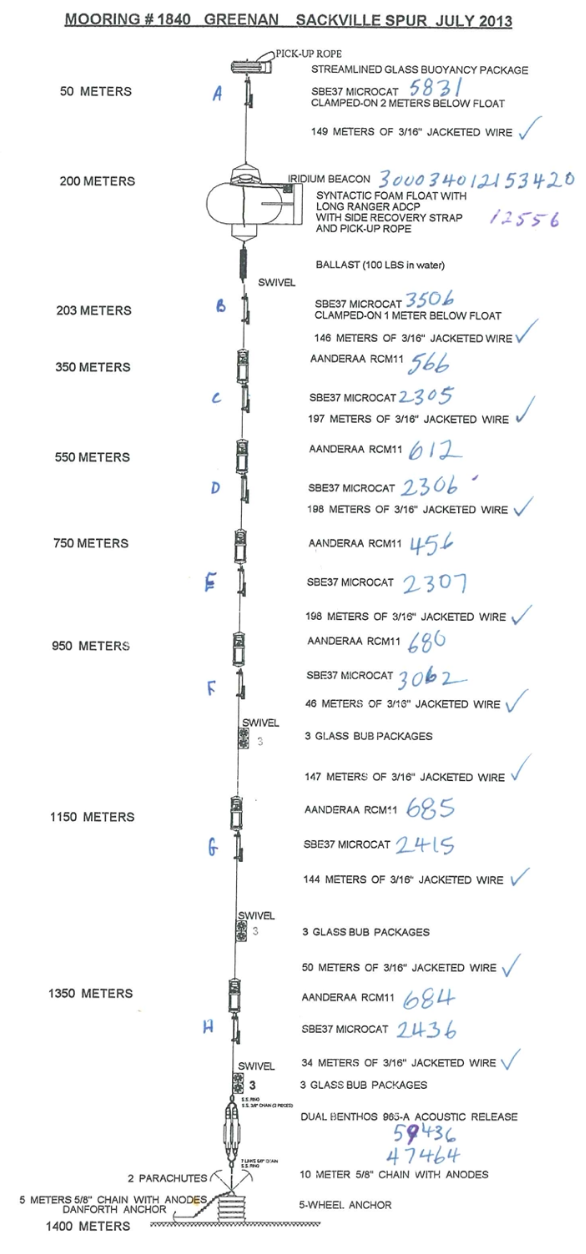 MOORING # 1840 GREENAN SACKVILLE SPUR JULY 2013
PICK-UP ROPE
STREAMLINED GLASS BUOYANCY PACKAGE
50 METERS A SBE37 MICROCAT 5831
CLAMPED-ON 2 METERS BELOW FLOAT
149 METERS OF 3/16" JACKETED WIRE ✓
200 METERS IRIDIUM BEACON 300034012153420
SYNTACTIC FOAM FLOAT WITH
LONG RANGER ADCP
WITH SIDE RECOVERY STRAP 12556
AND PICK-UP ROPE
BALLAST (100 LBS in water)
SWIVEL
203 METERS B SBE37 MICROCAT 3506
CLAMPED-ON 1 METER BELOW FLOAT
146 METERS OF 3/16" JACKETED WIRE ✓
350 METERS AANDERAA RCM11 566
C SBE37 MICROCAT 2305
197 METERS OF 3/16" JACKETED WIRE ✓
550 METERS AANDERAA RCM11 612
D SBE37 MICROCAT 2306
198 METERS OF 3/16" JACKETED WIRE ✓
750 METERS AANDERAA RCM11 456
E SBE37 MICROCAT 2307
198 METERS OF 3/16" JACKETED WIRE ✓
950 METERS AANDERAA RCM11 680
F SBE37 MICROCAT 3062
46 METERS OF 3/16" JACKETED WIRE ✓
SWIVEL
3 3 GLASS BUB PACKAGES
147 METERS OF 3/16" JACKETED WIRE ✓
1150 METERS AANDERAA RCM11 685
G SBE37 MICROCAT 2415
144 METERS OF 3/16" JACKETED WIRE ✓
SWIVEL
3 3 GLASS BUB PACKAGES
50 METERS OF 3/16" JACKETED WIRE ✓
1350 METERS AANDERAA RCM11 684
H SBE37 MICROCAT 2436
34 METERS OF 3/16" JACKETED WIRE ✓
SWIVEL
3 3 GLASS BUB PACKAGES
S.S. RING
DUAL BENTHOS 965-A ACOUSTIC RELEASE
59436
47464
S.S. RING
2 PARACHUTES 10 METER 5/8" CHAIN WITH ANODES
5 METERS 5/8" CHAIN WITH ANODES
DANFORTH ANCHOR 5-WHEEL ANCHOR
1400 METERS